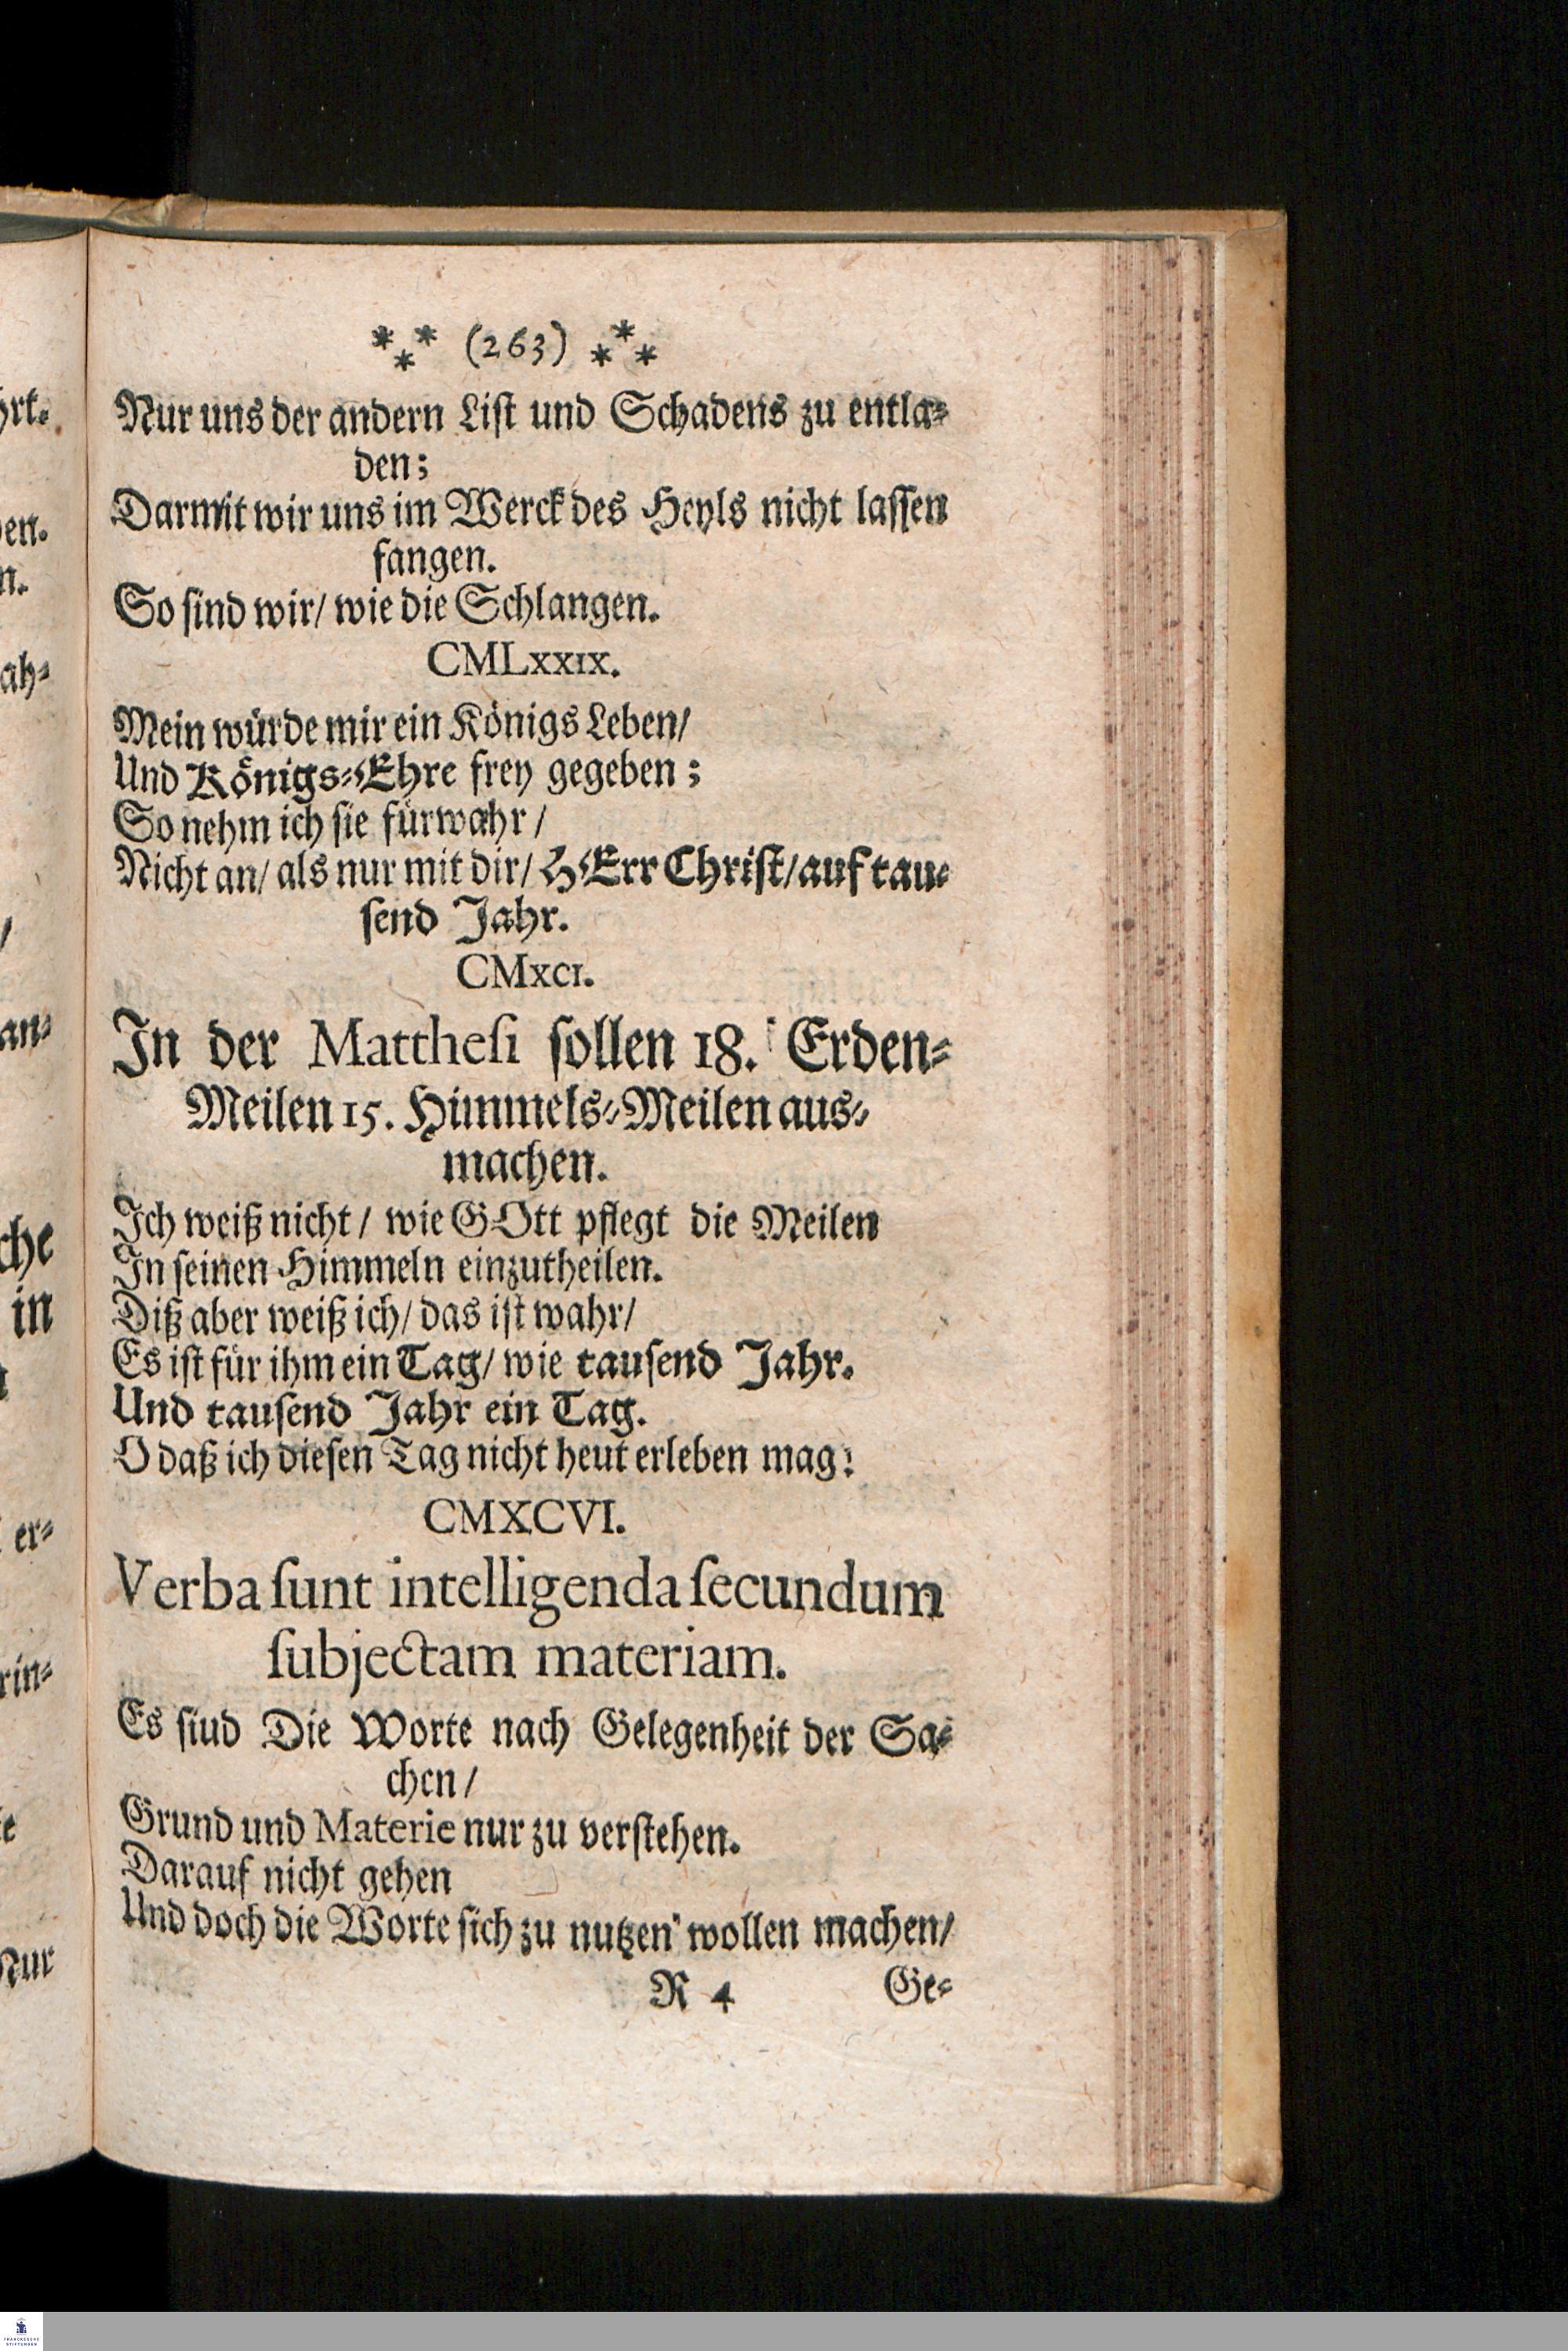 *** (263) ***
Nur uns der andern List und Schadens zu entla-
den;
Darmit wir uns im Werck des Heyls nicht lassen
fangen.
So sind wir/ wie die Schlangen.
CMLXXIX.
Mein würde mir ein Königs Leben/
Und Königs-Ehre frey gegeben;
So nehm ich sie fürwahr/
Nicht an/ als nur mit dir/ HErr Christ/ auf tau-
send Jahr.
CMXCI.
In der Matthesi sollen 18. Erden-
Meilen 15. Himmels-Meilen aus-
machen.
Ich weiß nicht/ wie GOtt pflegt die Meilen
In seinen Himmeln einzutheilen.
Diß aber weiß ich/ das ist wahr/
Es ist für ihm ein Tag/ wie tausend Jahr.
Und tausend Jahr ein Tag.
O daß ich diesen Tag nicht heut erleben mag!
CMXCVI.
Verba sunt intelligenda secundum
subjectam materiam.
Es siud Die Worte nach Gelegenheit der Sa-
chen/
Grund und Materie nur zu verstehen.
Darauf nicht gehen
Und doch die Worte sich zu nutzen wollen machen/
R 4 Ge-
hrk-
en.
n.
ah-
/
an-
che
in
er-
rin-
Nur
FRANCKESCHE
STIFTUNGEN